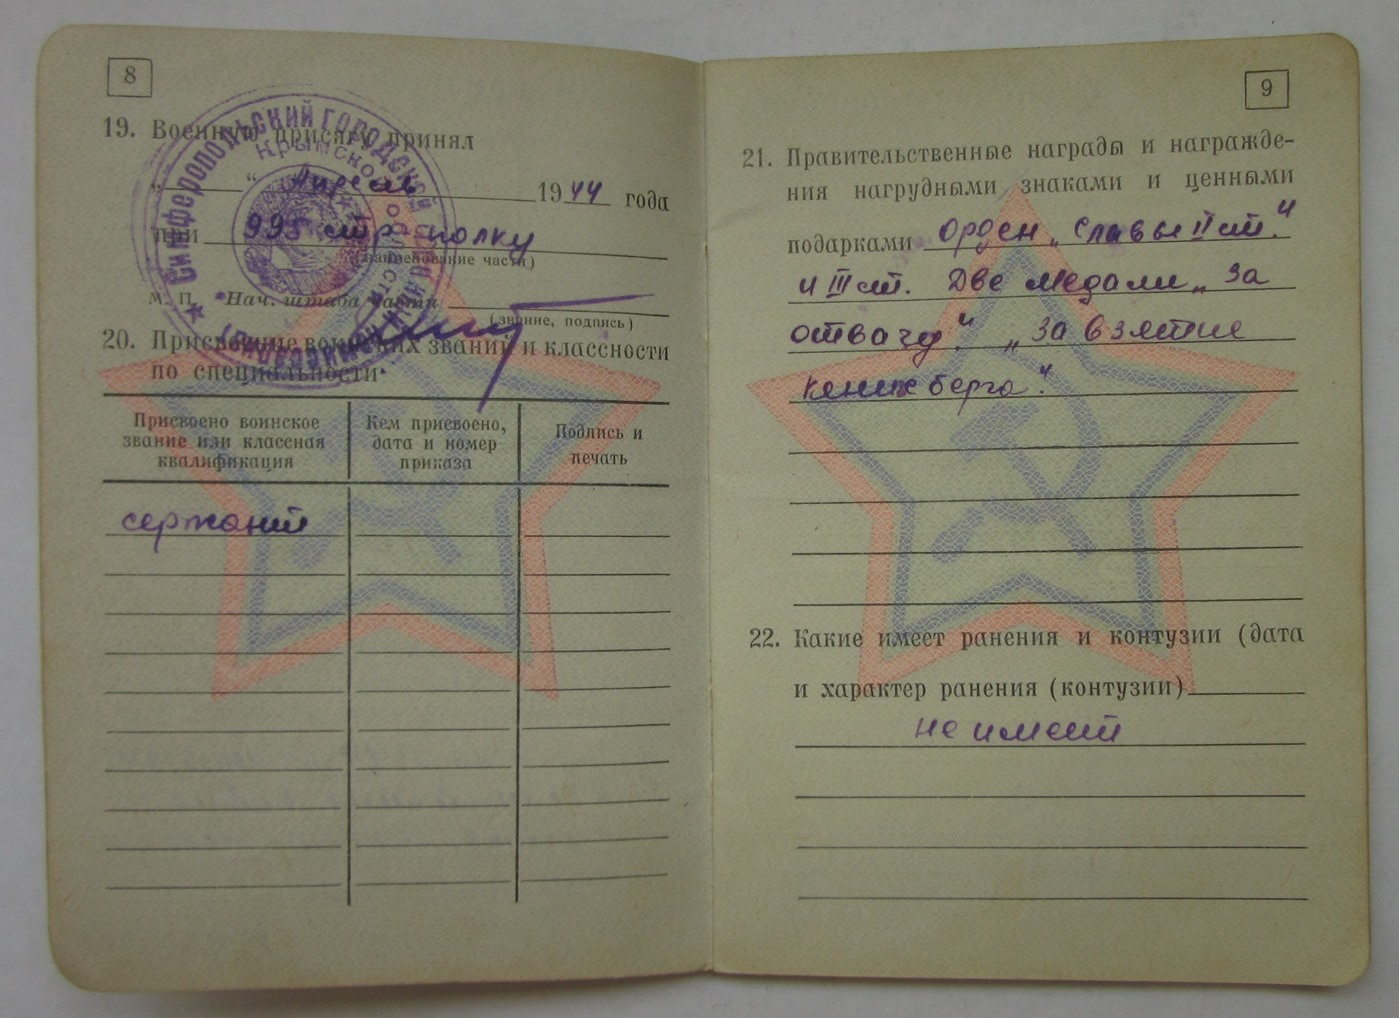 8
19. Военную присягу принял
„ “ Апрель 1944 года
при 995 стр. полку
(наименование части)
М. П. Нач. штаба части
(звание, подпись)
Симферопольский городской
Крымской области
20. Присвоение воинских званий и классности
по специальности
Присвоено воинское
звание или классная
квалификация
Кем присвоено,
дата и номер
приказа
Подпись и
печать
сержант
9
21. Правительственные награды и награжде-
ния нагрудными знаками и ценными
подарками Орден „Славы II ст."
и III ст. Две медали „За
отвагу". „За взятие
Кенигсберга".
22. Какие имеет ранения и контузии (дата
и характер ранения (контузии)
не имеет